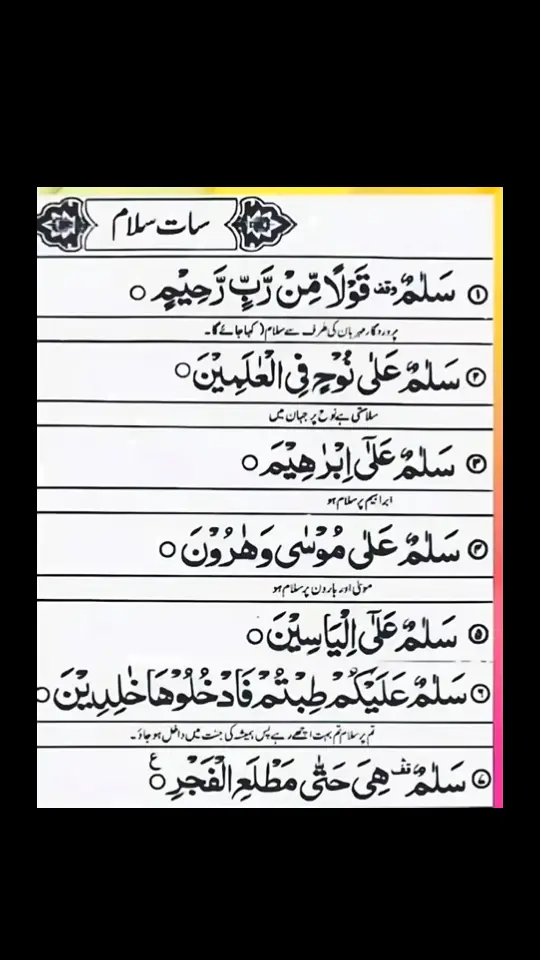 سات سلام
۱ سَلٰمٌ وقف قَوْلًا مِّنْ رَّبٍّ رَّحِيْمٍ ○
پروردگار مہربان کی طرف سے سلام ( کہا جائے گا۔
۲ سَلٰمٌ عَلٰى نُوْحٍ فِى الْعٰلَمِيْنَ ○
سلامتی ہے نوح پر جہان میں
۳ سَلٰمٌ عَلٰٓى اِبْرٰهِيْمَ ○
ابراہیم پر سلام ہو
۴ سَلٰمٌ عَلٰى مُوْسٰى وَهٰرُوْنَ ○
موسٰی اور ہارون پر سلام ہو
۵ سَلٰمٌ عَلٰٓى اِلْيَاسِيْنَ ○
۶ سَلٰمٌ عَلَيْكُمْ طِبْتُمْ فَادْخُلُوْهَا خٰلِدِيْنَ ○
تم پر سلام تم بہت اچھے رہے پس ہمیشہ کی جنت میں داخل ہو جاؤ۔
۷ سَلٰمٌ قف هِىَ حَتّٰى مَطْلَعِ الْفَجْرِ ○ ع